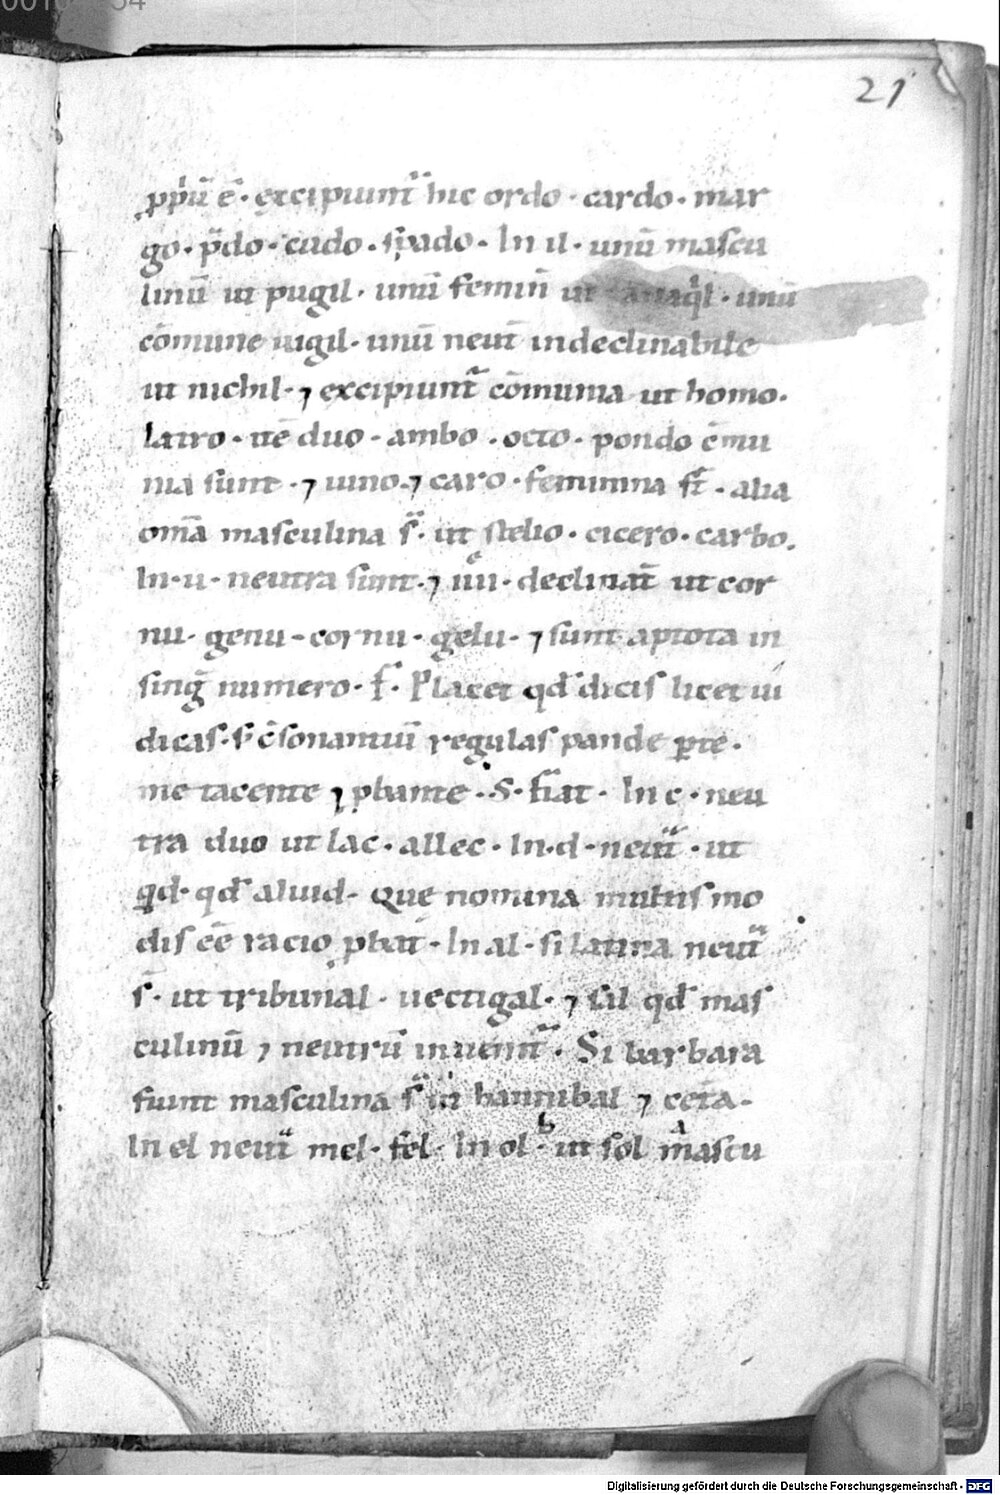 21
ꝓpriū ē · excipiunt᷑ hic ordo · cardo · mar
go · p̄do · cudo · spado · In il · unū mascu
linū ut pugil · unū feminī ut tanaqͥl · unū
cōmune uigil · unū neut̄ indeclinabile
ut nichil · ⁊ excipiunt᷑ cōmunia ut homo ·
latro · itē duo · ambo · octo · pondo cōmu
nia sunt · ⁊ uirgo ⁊ caro · feminina st̄ · alia
om̄a masculina s̄ · ut stelio · cicero · carbo ·
In · u · neutra sunt · ⁊ declinat̄ ut cor
nu · genu · cornu · gelu · ⁊ sunt aptota in
singl̄ numero · f · Placet qd̄ dicis licet ui
dicas · s c̄sonantiū regulas pande ꝑte ·
me tacente ⁊ ꝓbante · S · fiat · In c · neu
tra duo ut lac · allec · In · d · neut᷑ · ut
qͥd · qd̄ aliud · Que nomina multis mo
dis eē racio ꝓbat · In al · si latina neut᷑
s̄ · ut tribunal · uectigal · ⁊ sal qd̄ mas
culinū ⁊ neutrū inuenit᷑ · Si barbara
fiunt masculina s̄ ut hannibal ⁊ cet̄a ·
In el neut᷑ mel · fel · In ol · ut sol mascu
Digitalisierung gefördert durch die Deutsche Forschungsgemeinschaft - DFG